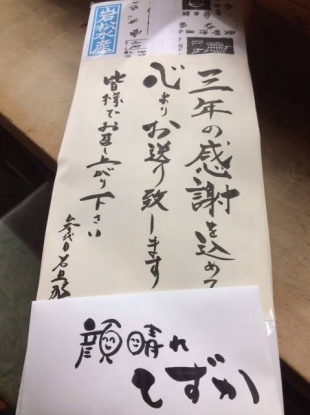 岩松水産
三年の感謝を込めて
心よりお送り致します
皆様でお召し上がり下さい
顔晴れ
てずか